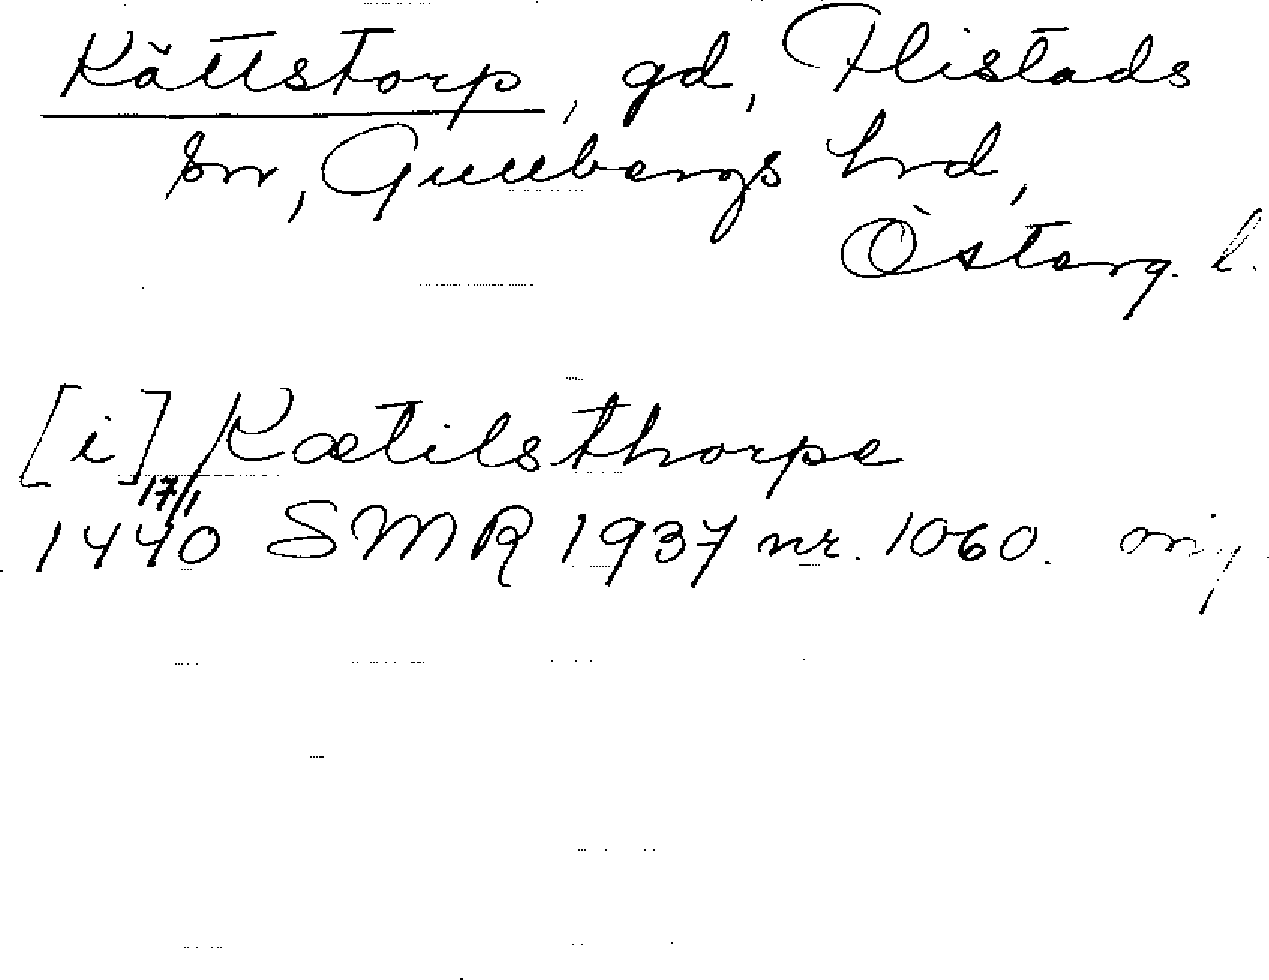 Kättstorp, gd, Flistads
sn, Gullbergs hrd,
Österg. l.
[i] Kætilsthorpe
17/1
1440 SMR 1937 nr. 1060. orig.